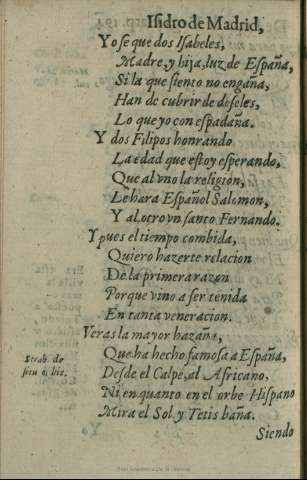 Isidro de Madrid,
Yo se que dos Isabeles,
Madre, y hija, luz de España,
Si la que siento no engaña,
Han de cubrir de doseles,
Lo que yo con espadaña.
Y dos Filipos honrando
La edad que estoy esperando,
Que al vno la religion,
Le hara Español Salomon,
Y al otro vn santo Fernando.
Y pues el tiempo combida,
Quiero hazerte relacion
De la primera razon
Porque vino a ser tenida
En tanta veneracion.
Veras la mayor hazaña,
Que ha hecho famosa a España,
Strab. de
situ orbis.
Desde el Calpe, al Africano.
Ni en quanto en el orbe Hispano
Mira el Sol y Tetis baña.
Siendo